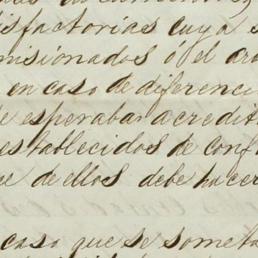 isfactorias cuya s
misionados ó el ar
en caso de diferenci
e esperaban acredit
establecidos de conf
de ellos debe hacer
caso que se someta